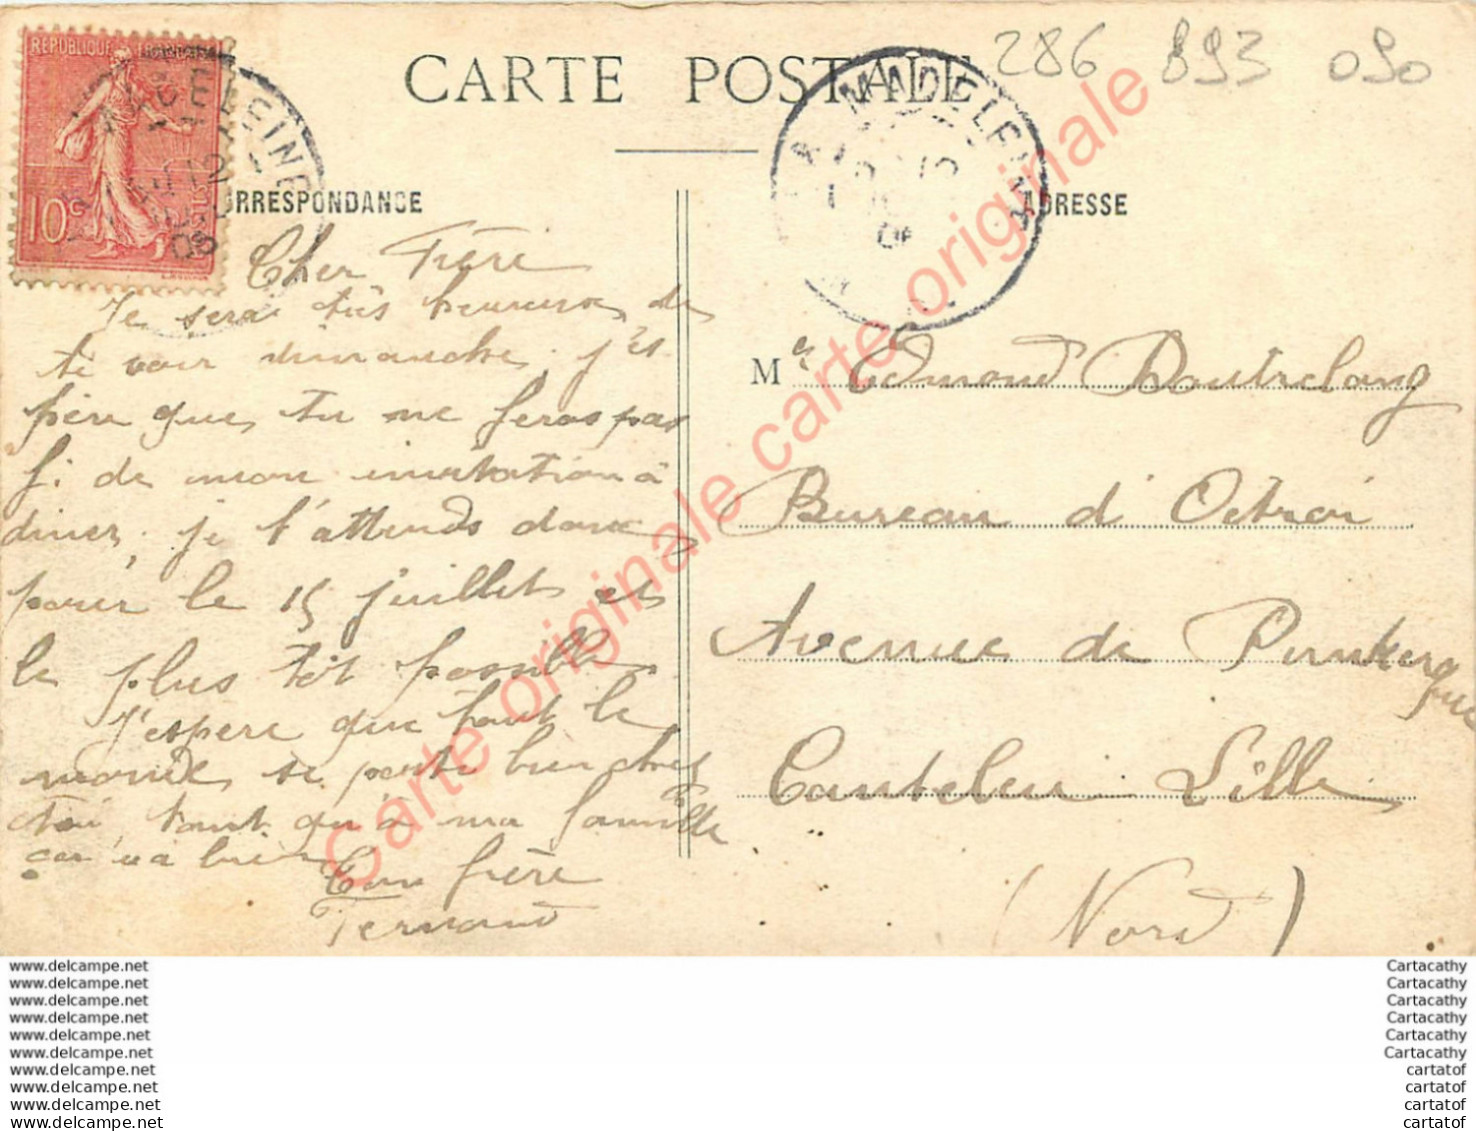 RÉPUBLIQUE FRANÇAISE
10c
MADELEINE
08
CARTE POSTALE
286 893 090
LA MADELEINE
CORRESPONDANCE
ADRESSE
Cher Frère
Je serai très heureux de
te voir dimanche, j'es
père que tu ne feras pas
fi de mon invitation à
diner, je t'attends donc
pour le 15 juillet et
le plus tôt possible
J'espère que tout le
monde se porte bien chez
toi, tant qu'à ma famille
ça va bien
Ton frère
Fernand
Mr Edmond Doutrelong
Bureau d'Octroi
Avenue de Dunkerque
Canteleu Lille
(Nord)
Carte originale carte originale Carte originale carte originale
www.delcampe.net
www.delcampe.net
www.delcampe.net
www.delcampe.net
www.delcampe.net
www.delcampe.net
www.delcampe.net
www.delcampe.net
www.delcampe.net
www.delcampe.net
Cartacathy
Cartacathy
Cartacathy
Cartacathy
Cartacathy
Cartacathy
cartatof
cartatof
cartatof
cartatof